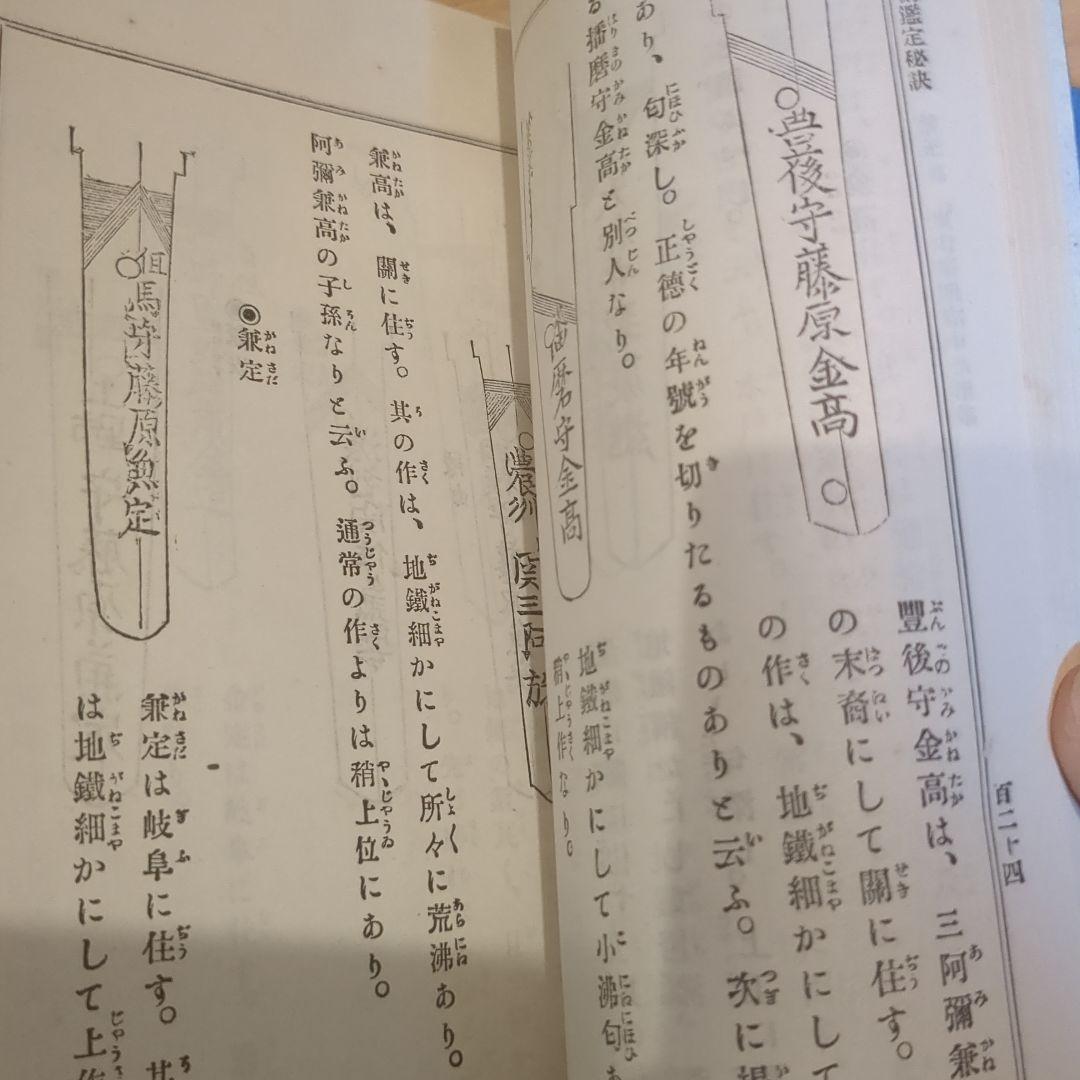 鑑定秘訣
豊後守藤原金高
豐後守金高は、三阿彌兼
の末裔にして關に住す。
の作は、地鐵細かにして
あり、匂深し。正德の年號を切りたるものありと云ふ。次に
る播磨守金高と別人なり。
播磨守金高
地鐵細かにして小沸匂あ
稍上作なり。
百二十四
濃州関三阿
兼高は、關に住す。其の作は、地鐵細かにして所々に荒沸あり。
阿彌兼高の子孫なりと云ふ。通常の作よりは稍上位にあり。
◉兼定
但馬守藤原兼定
兼定は岐阜に住す。其
は地鐵細かにして上作